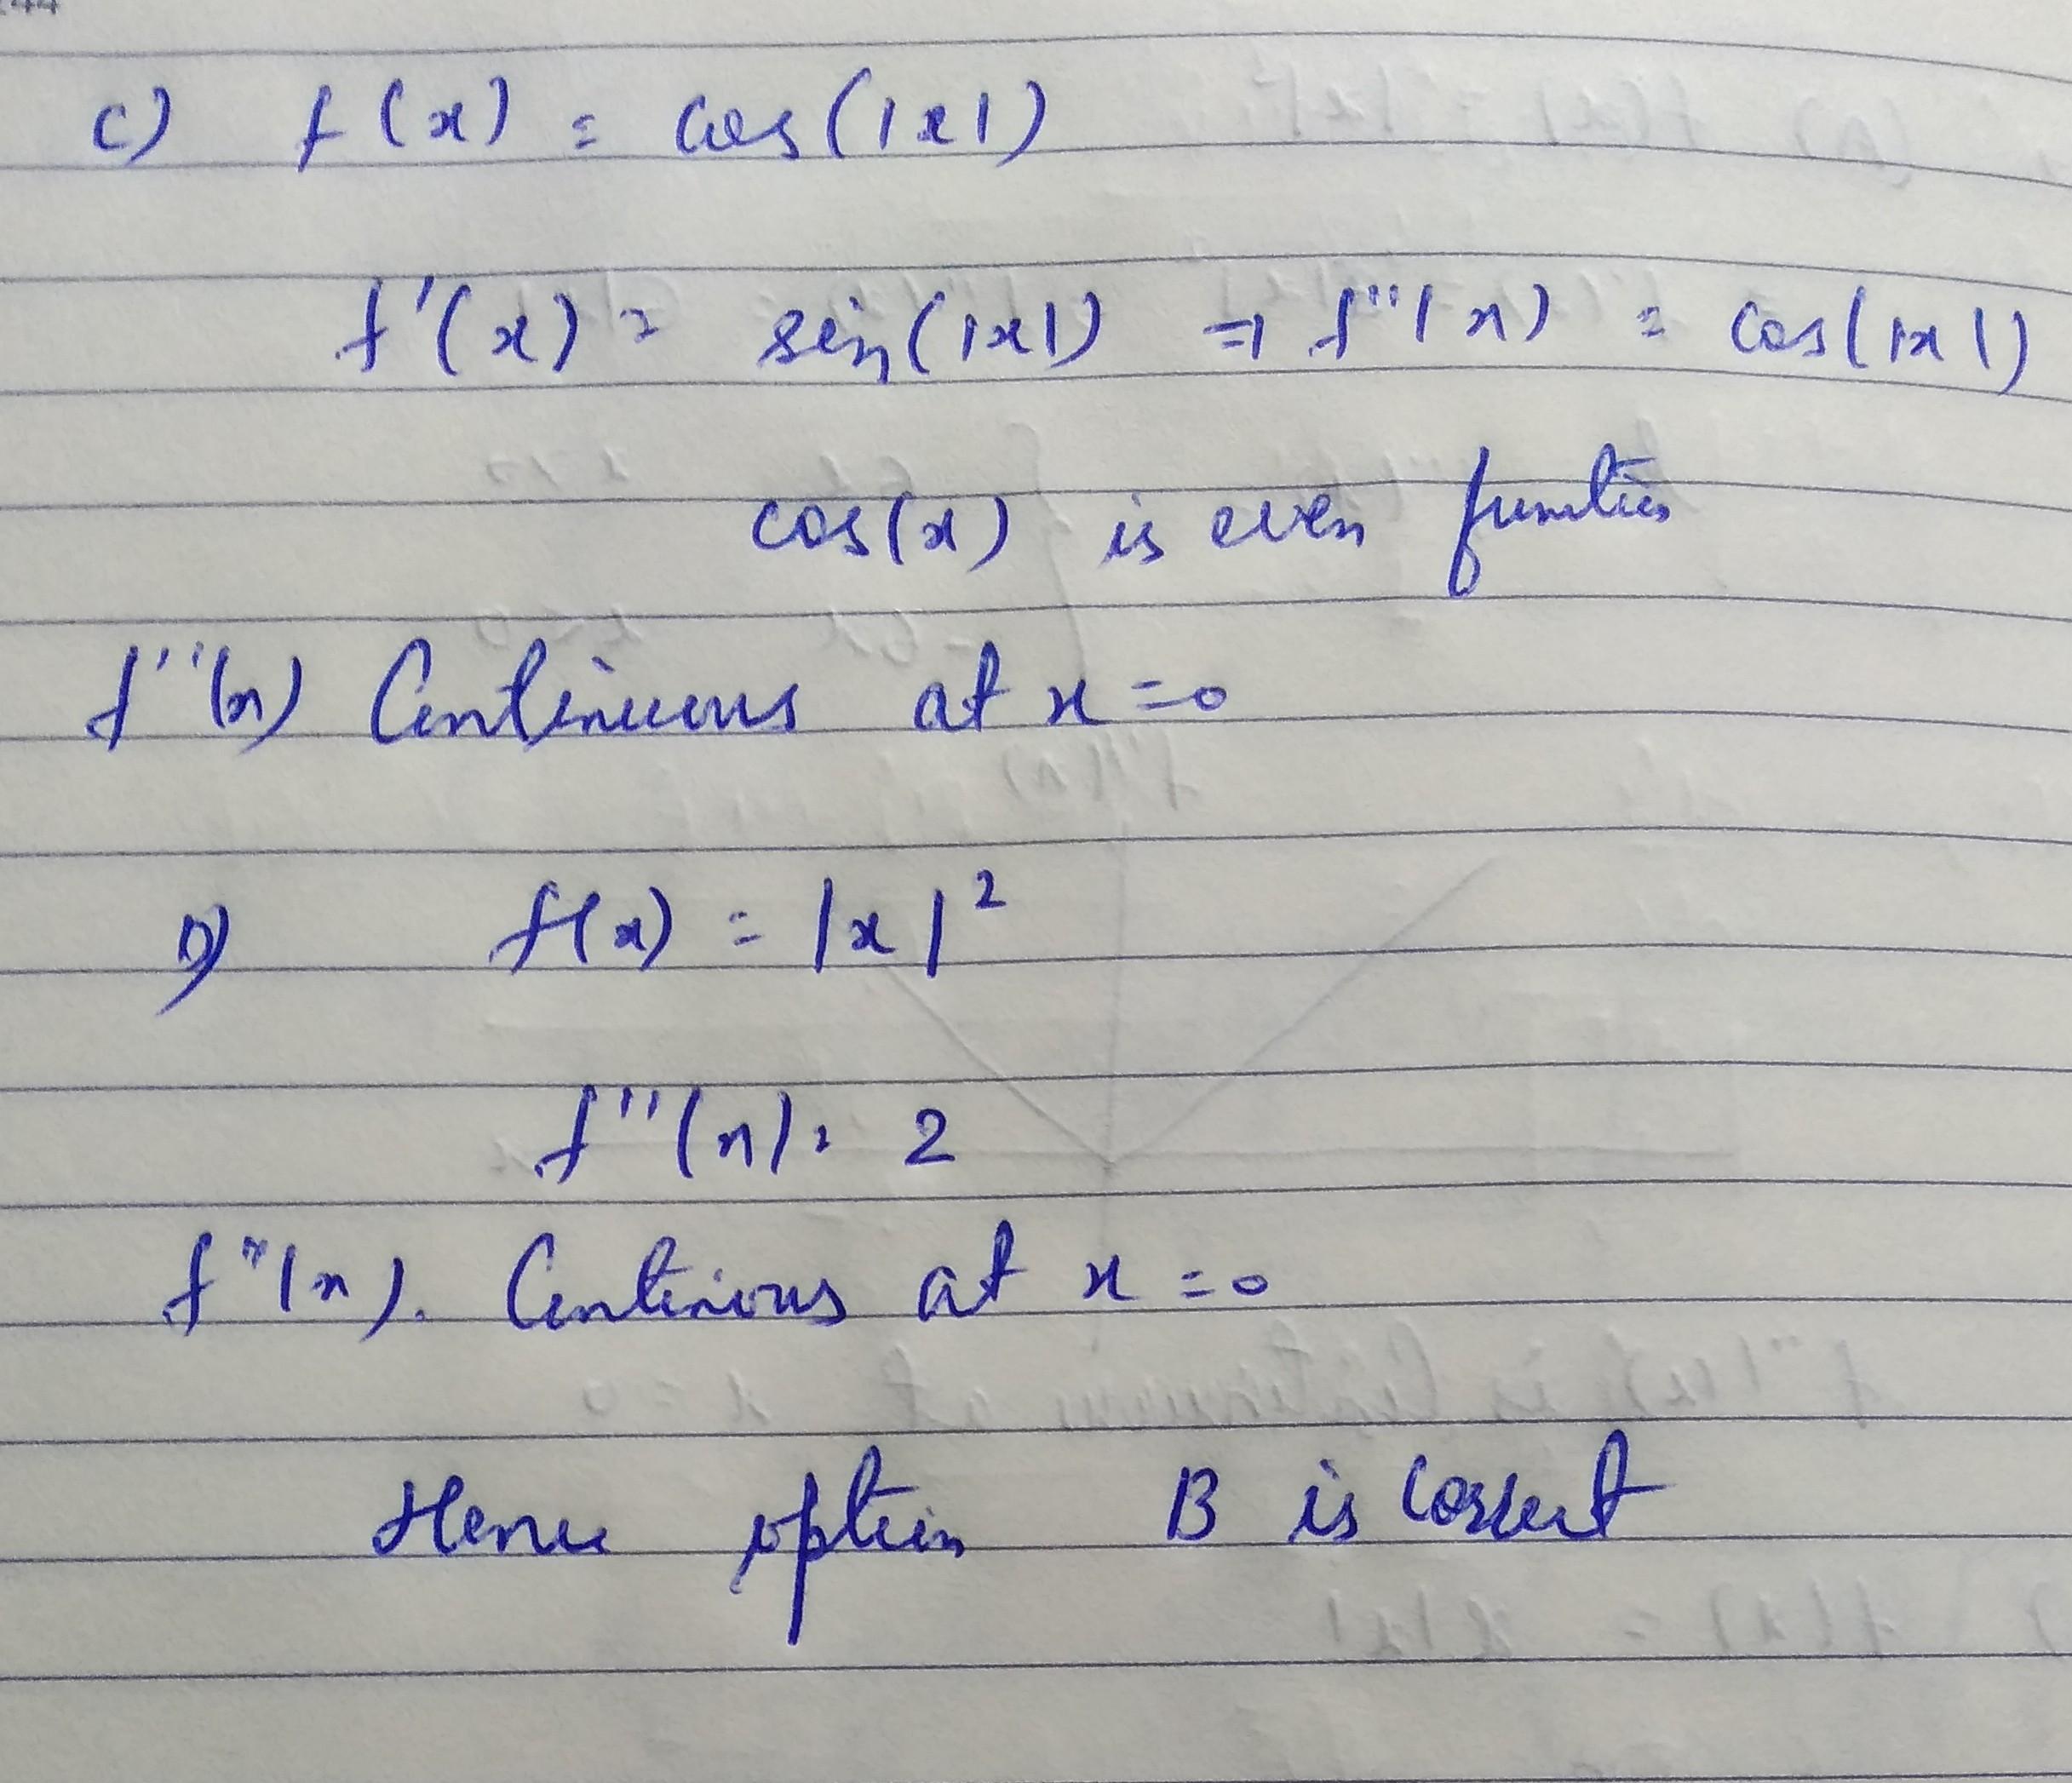 C) f(x) = cos(|x|)
f'(x) = sin(|x|) ⇒ f''(x) = cos(|x|)
cos(x) is even function
f''(x) Continuous at x=0
D) f(x) = |x|²
f''(x) = 2
f''(x). Continious at x=0
Hence option B is correct